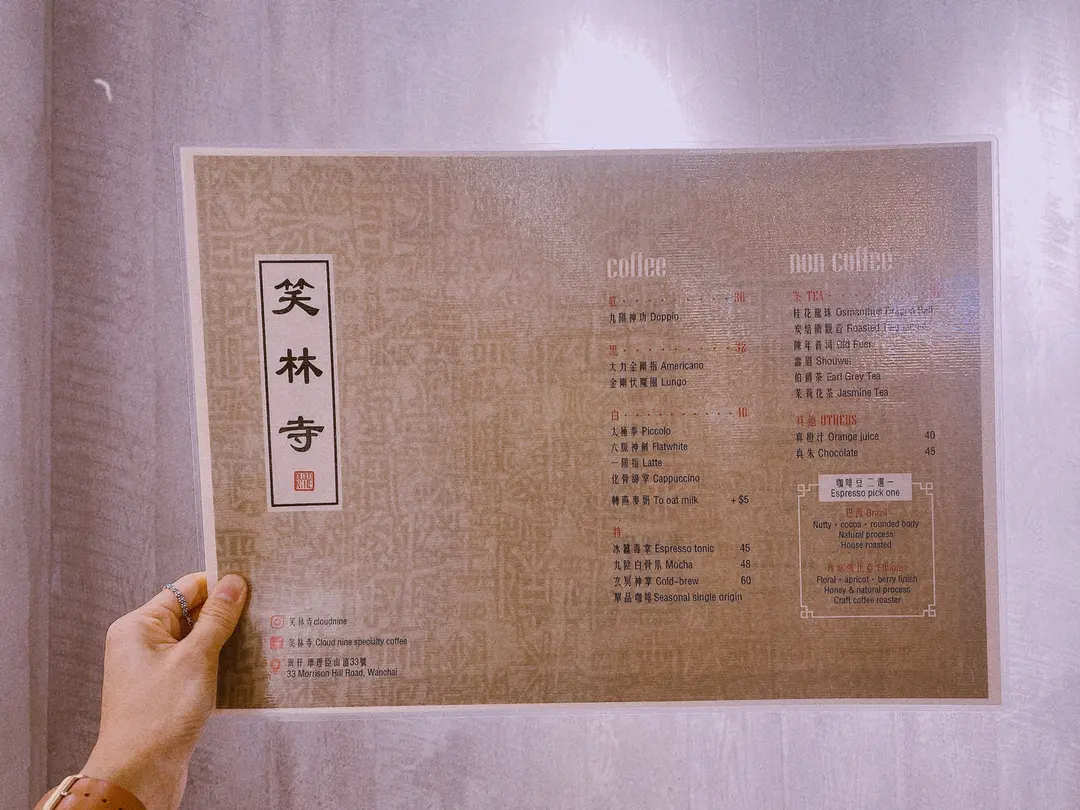 笑
林
寺
笑林寺cloudnine
笑林寺 Cloud nine specialty coffee
灣仔 摩理臣山道33號
33 Morrison Hill Road, Wanchai
coffee
紅 · · · · · · · · · 30
九陽神功 Doppio
黑 · · · · · · · · · 32
大力金剛指 Americano
金剛伏魔圈 Lungo
白 · · · · · · · · · 40
太極拳 Piccolo
六脈神劍 Flatwhite
一陽指 Latte
化骨綿掌 Cappuccino
轉燕麥奶 To oat milk +$5
特
冰蠶毒掌 Espresso tonic 45
九陰白骨爪 Mocha 48
玄冥神掌 Cold-brew 60
單品咖啡 Seasonal single origin
non coffee
茶 TEA
桂花龍珠 Osmanthus Dragon Ball
炭焙鐵觀音 Roasted
陳年普洱 Old Puer
壽眉 Shouwei
伯爵茶 Earl Grey Tea
茉莉花茶 Jasmine Tea
其他 OTHERS
真橙汁 Orange juice 40
真朱 Chocolate 45
咖啡豆 二選一
Espresso pick one
巴西 Brazil
Nutty · cocoa · rounded body
Natural process
House roasted
埃塞俄比亞 Ethiopia
Floral · apricot · berry finish
Honey & natural process
Craft coffee roaster